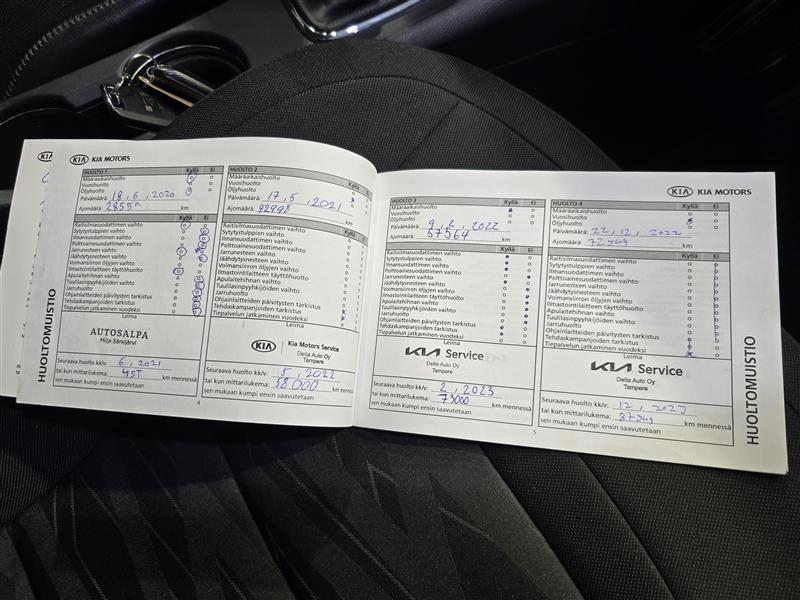 KIA
KIA MOTORS
HUOLTO 1 Kyllä Ei
Määräaikaishuolto
Vuosihuolto
Öljyhuolto
Päivämäärä: 18, 6, 2020
Ajomäärä: km
Kyllä Ei
Raitisilmasuodattimen vaihto
Sytytystulppien vaihto
Ilmansuodattimen vaihto
Polttoainesuodattimen vaihto
Jarrunesteen vaihto
Jäähdytysnesteen vaihto
Voimansiirron öljyjen vaihto
Ilmastointilaitteen täyttöhuolto
Apulaitehihnan vaihto
Tuulilasinpyyhkijöiden vaihto
Jarruhuolto
Ohjainlaitteiden päivitysten tarkistus
Tehdaskampanjoiden tarkistus
Tiepalvelun jatkaminen vuodeksi
Leima
AUTOSALPA
Milja Särkijärvi
Seuraava huolto kk/v: 6, 2021
tai kun mittarilukema: 45T km mennessä
sen mukaan kumpi ensin saavutetaan
HUOLTOMUISTIO
4
HUOLTO 2 Kyllä Ei
Määräaikaishuolto
Vuosihuolto
Öljyhuolto
Päivämäärä: 17, 5, 2021
Ajomäärä: 42998 km
Kyllä Ei
Raitisilmasuodattimen vaihto
Sytytystulppien vaihto
Ilmansuodattimen vaihto
Polttoainesuodattimen vaihto
Jarrunesteen vaihto
Jäähdytysnesteen vaihto
Voimansiirron öljyjen vaihto
Ilmastointilaitteen täyttöhuolto
Apulaitehihnan vaihto
Tuulilasinpyyhkijöiden vaihto
Jarruhuolto
Ohjainlaitteiden päivitysten tarkistus
Tehdaskampanjoiden tarkistus
Tiepalvelun jatkaminen vuodeksi
Leima
KIA Kia Motors Service
Delta Auto Oy
Tampere
Seuraava huolto kk/v: 5, 2022
tai kun mittarilukema: 58000 km mennessä
sen mukaan kumpi ensin saavutetaan
KIA KIA MOTORS
HUOLTO 3 Kyllä Ei
Määräaikaishuolto
Vuosihuolto
Öljyhuolto
Päivämäärä: 9, 2, 2022
Ajomäärä: 57564 km
Kyllä Ei
Raitisilmasuodattimen vaihto
Sytytystulppien vaihto
Ilmansuodattimen vaihto
Polttoainesuodattimen vaihto
Jarrunesteen vaihto
Jäähdytysnesteen vaihto
Voimansiirron öljyjen vaihto
Ilmastointilaitteen täyttöhuolto
Apulaitehihnan vaihto
Tuulilasinpyyhkijöiden vaihto
Jarruhuolto
Ohjainlaitteiden päivitysten tarkistus
Tehdaskampanjoiden tarkistus
Tiepalvelun jatkaminen vuodeksi
Leima
KIA Service
Delta Auto Oy
Tampere
Seuraava huolto kk/v: 2, 2023
tai kun mittarilukema: 73000 km mennessä
sen mukaan kumpi ensin saavutetaan
5
HUOLTO 4 Kyllä Ei
Määräaikaishuolto
Vuosihuolto
Öljyhuolto
Päivämäärä: 22, 12, 2022
Ajomäärä: km
Kyllä Ei
Raitisilmasuodattimen vaihto
Sytytystulppien vaihto
Ilmansuodattimen vaihto
Polttoainesuodattimen vaihto
Jarrunesteen vaihto
Jäähdytysnesteen vaihto
Voimansiirron öljyjen vaihto
Ilmastointilaitteen täyttöhuolto
Apulaitehihnan vaihto
Tuulilasinpyyhkijöiden vaihto
Jarruhuolto
Ohjainlaitteiden päivitysten tarkistus
Tehdaskampanjoiden tarkistus
Tiepalvelun jatkaminen vuodeksi
Leima
KIA Service
Delta Auto Oy
Tampere
Seuraava huolto kk/v: 12, 2023
tai kun mittarilukema: km mennessä
sen mukaan kumpi ensin saavutetaan
HUOLTOMUISTIO